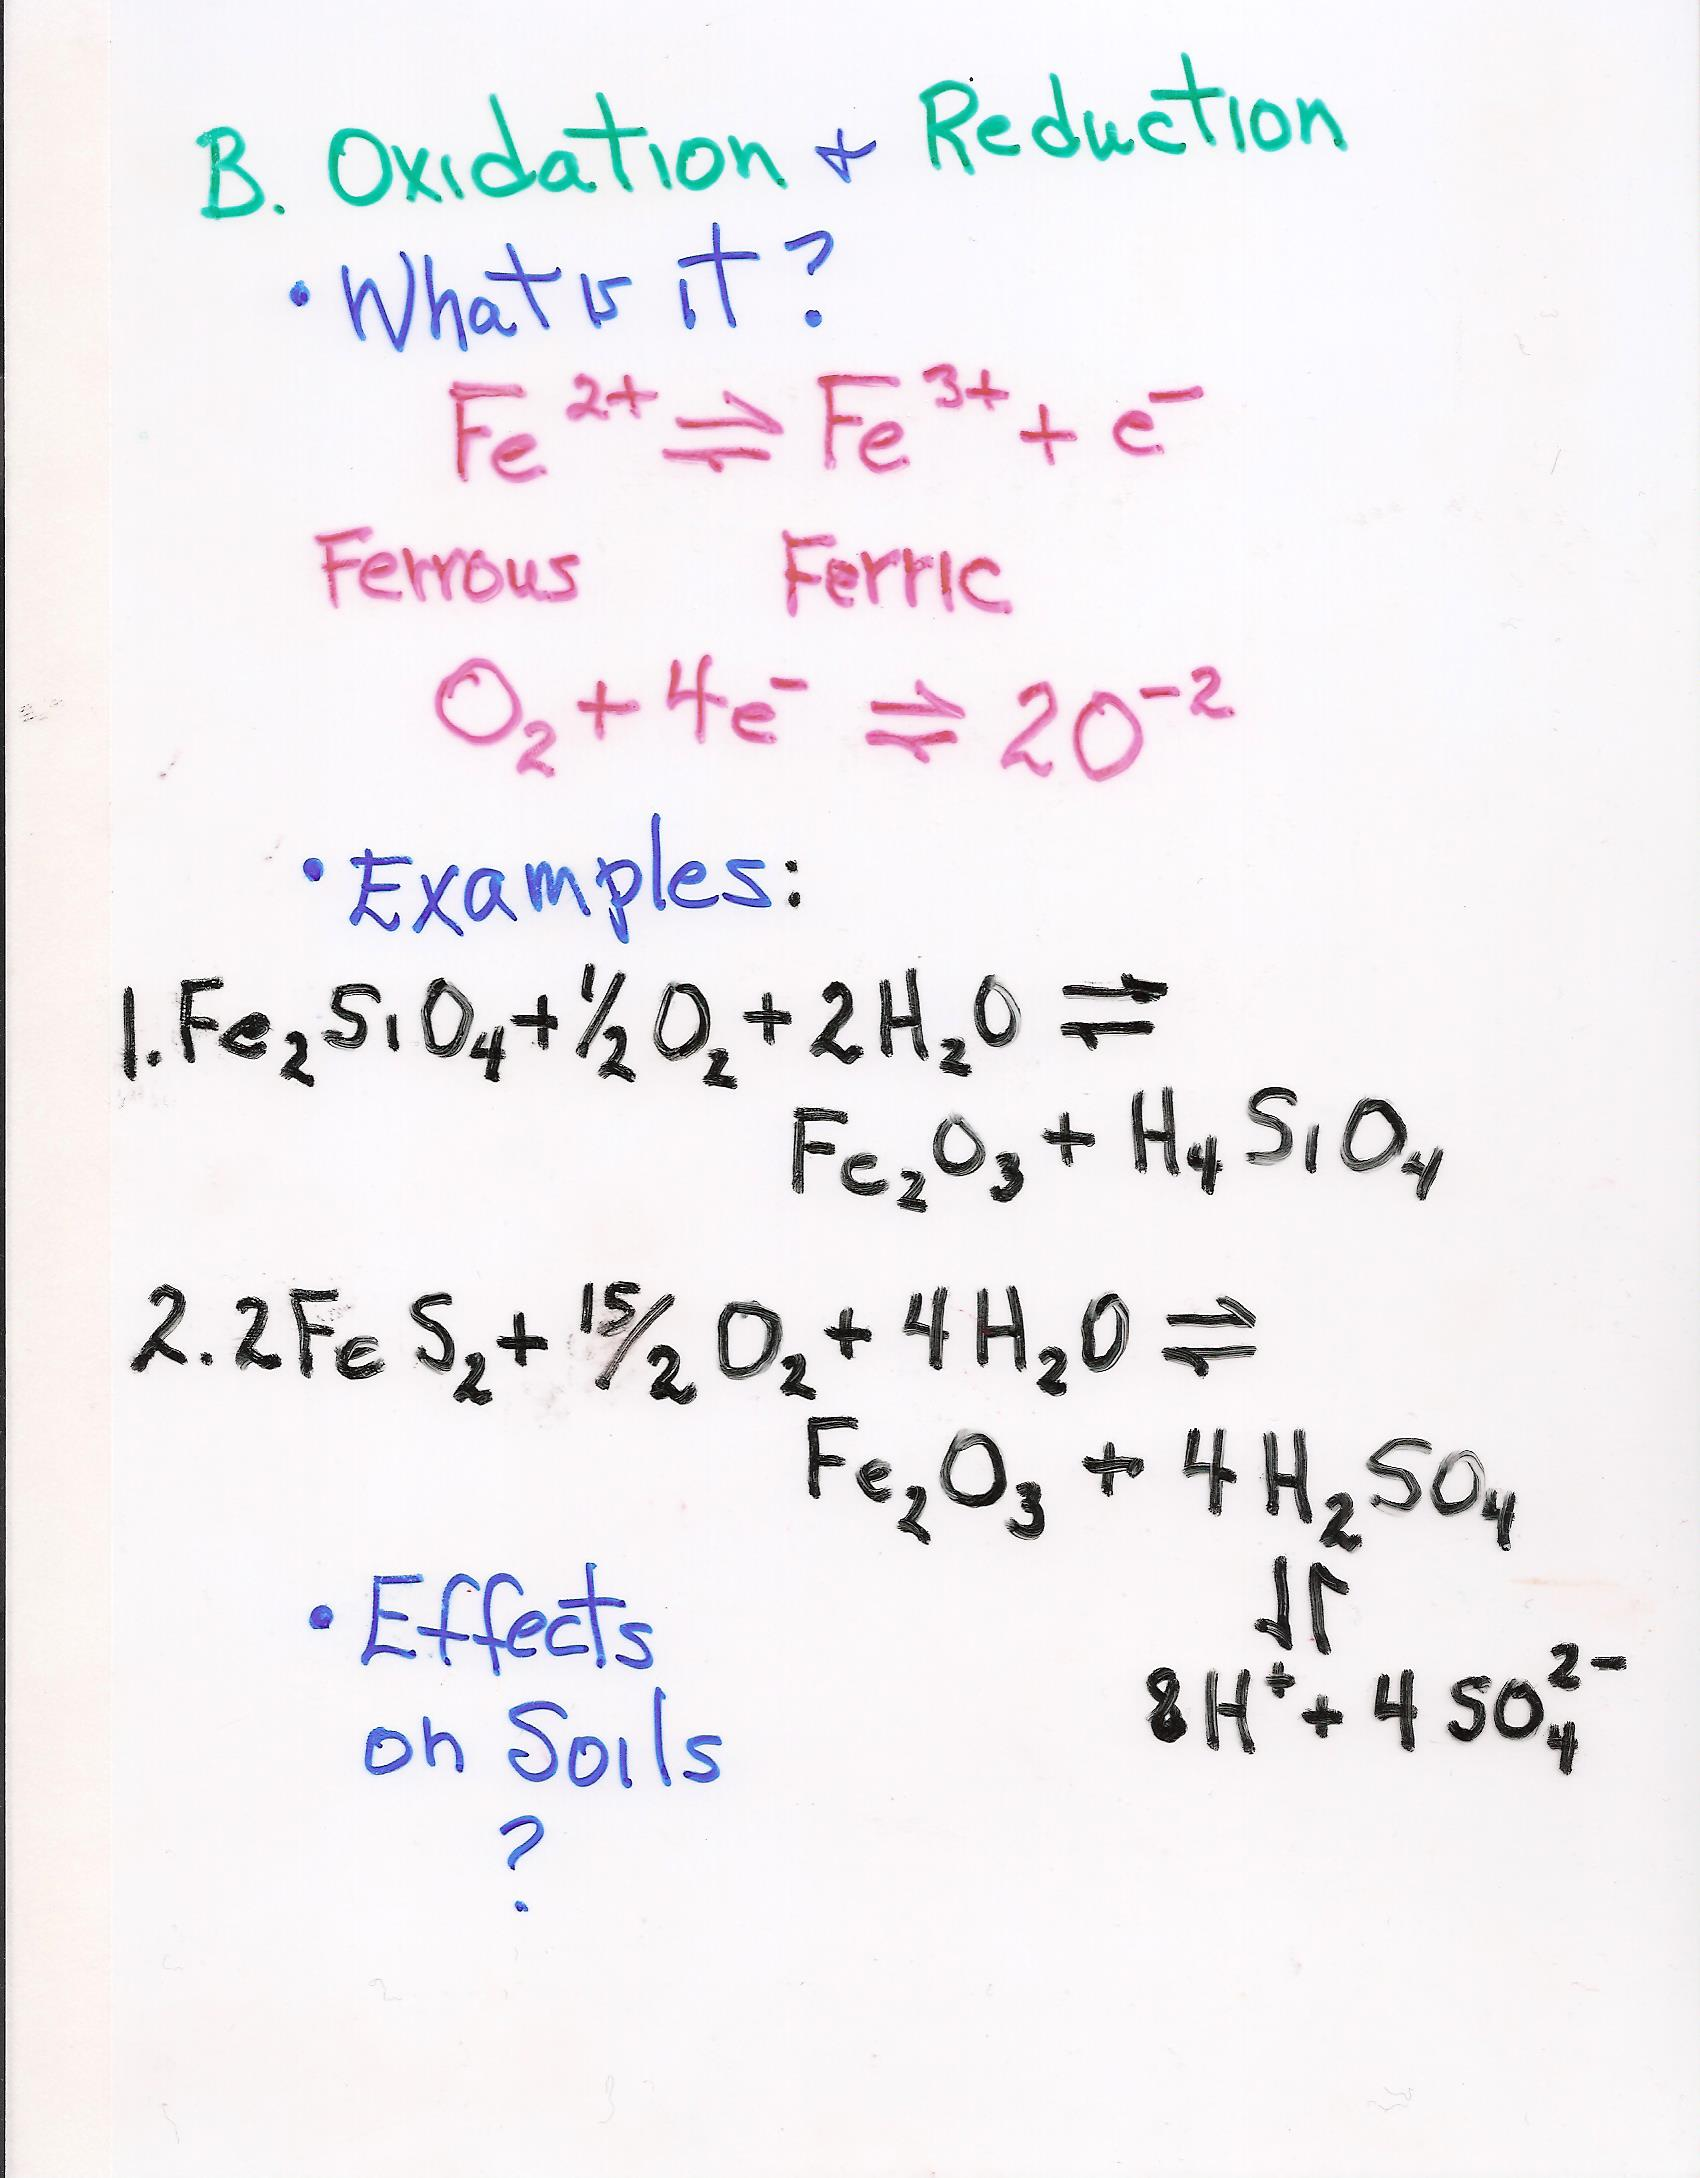 B. Oxidation + Reduction
• What is it?
Fe²⁺ ⇌ Fe³⁺ + e⁻
Ferrous Ferric
O₂ + 4e⁻ ⇌ 2O⁻²
• Examples:
1. Fe₂SiO₄ + ½ O₂ + 2H₂O ⇌
Fe₂O₃ + H₄SiO₄
2. 2FeS₂ + 15/2 O₂ + 4H₂O ⇌
Fe₂O₃ + 4H₂SO₄
⇃↾
8H⁺ + 4SO₄²⁻
• Effects
on Soils
?